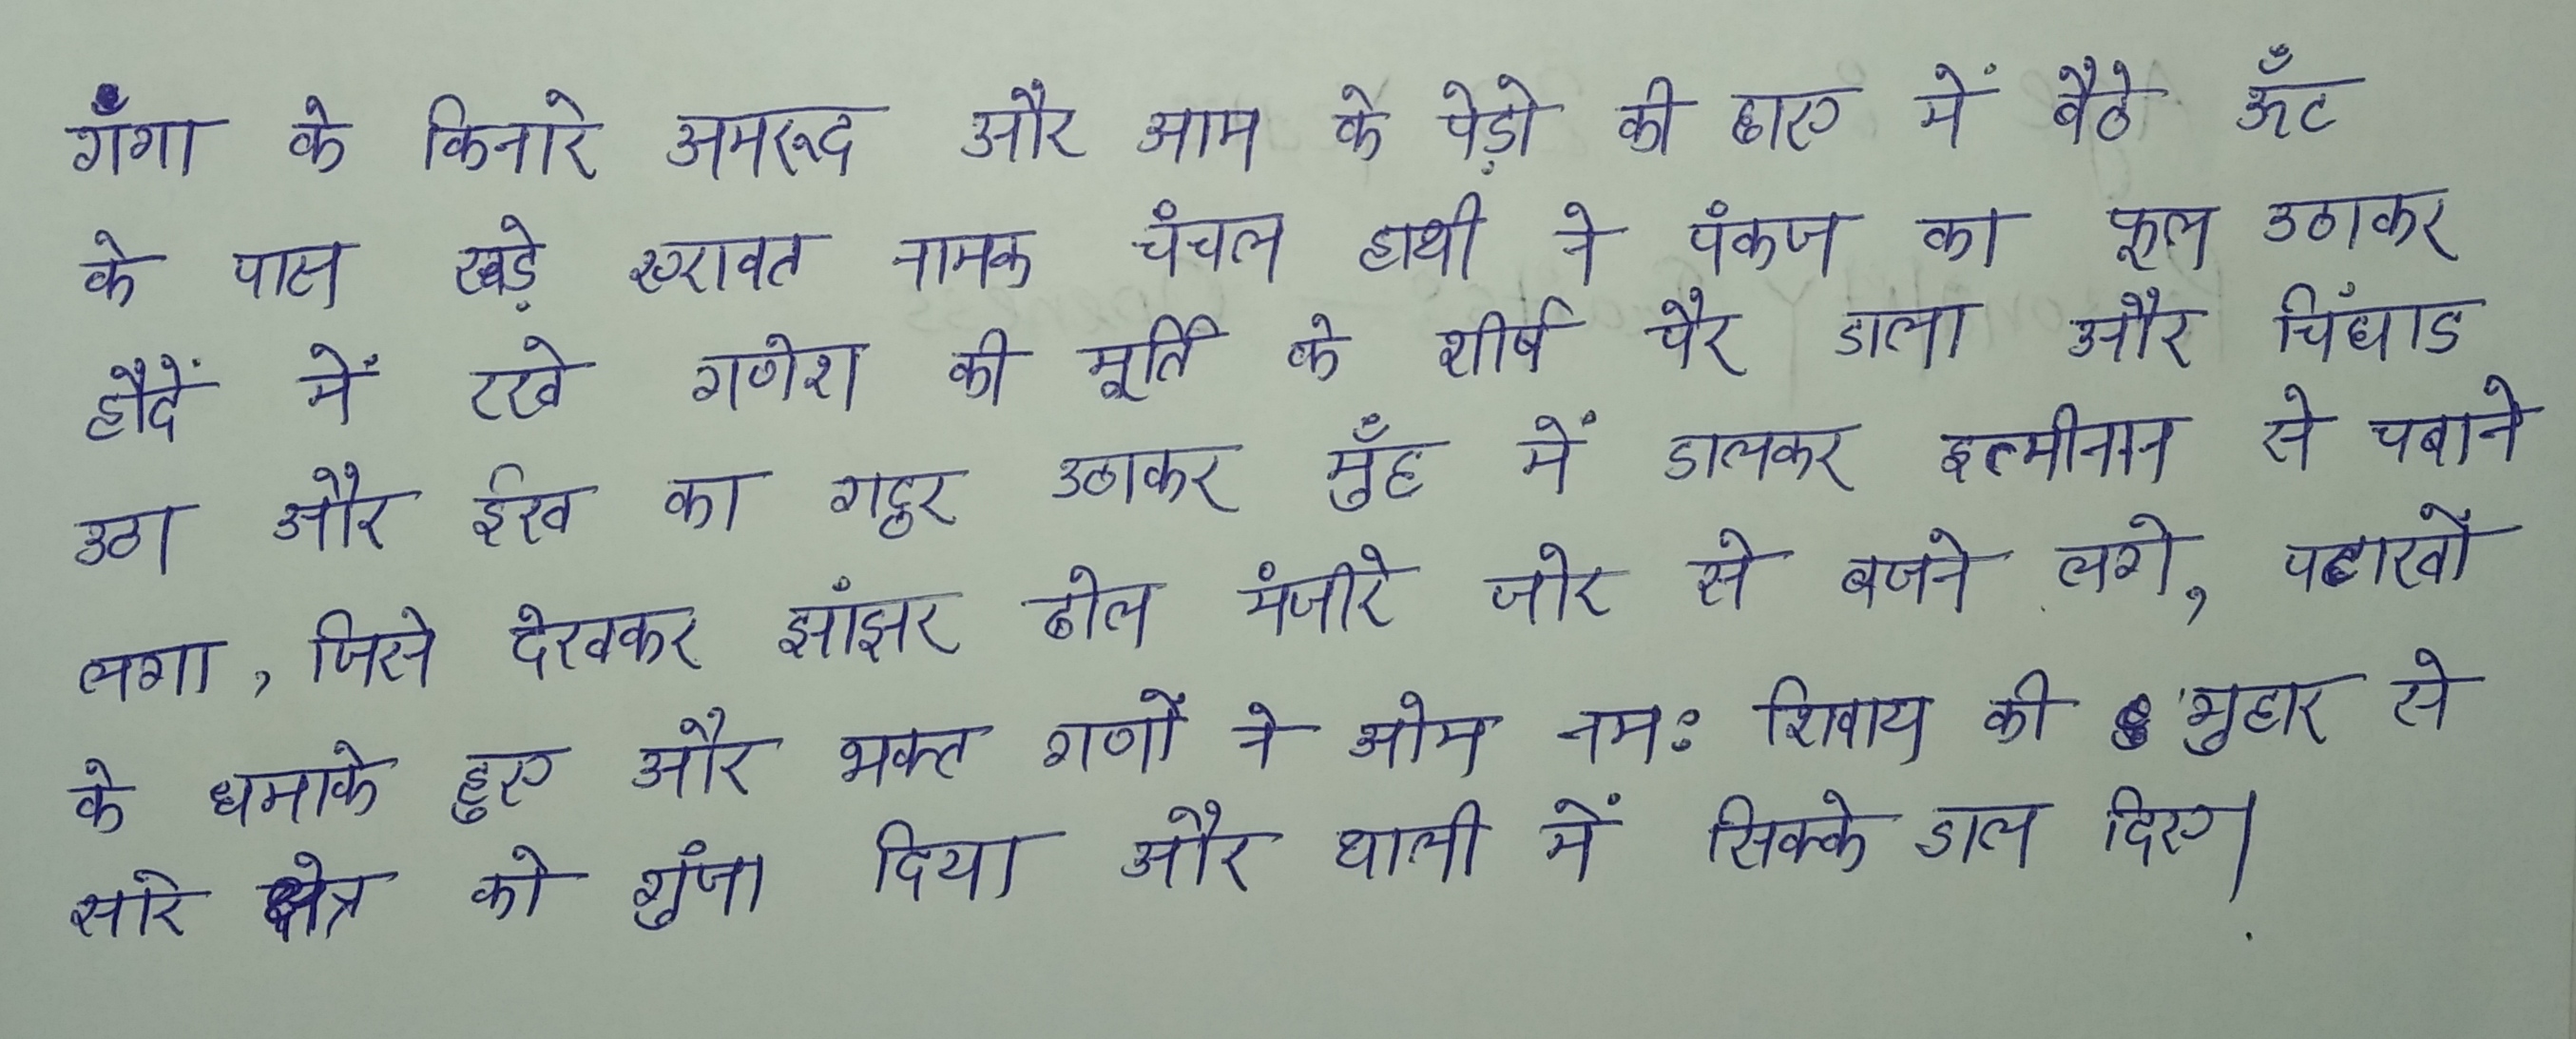 गँगा के किनारे अमरूद और आम के पेड़ो की छाए में बैठे ऊँट
के पास खड़े एरावत नामक चंचल हाथी ने पंकज का फूल उठाकर
हौदें में रखे गणेश की मूर्ति के शीर्ष पैर डाला और चिंघाड
उठा और ईख का गट्ठर उठाकर मुँह में डालकर इत्मीनान से चबाने
लगा, जिसे देखकर झांझर ढोल मंजीरे जोर से बजने लगे, पटाखों
के धमाके हुए और भक्त गणों ने ओम नमः शिवाय की से
सारे क्षेत्र को गुंजा दिया और थाली में सिक्के डाल दिए।